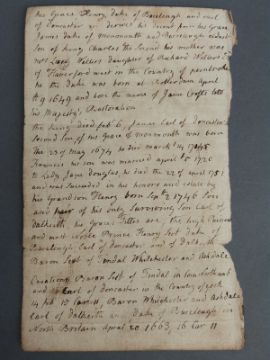 his Grace Henry Duke of Buccleugh and earl
of Doncaster is derived his descent from his Grace
James duke of Monmouth and Buccleugh eldest
Son of king Charles the Second his mother was
Mrs Lucy Walters daughter of Richard Walters Esqr
of Haverford west in the Country of pembroke
he the duke was born at Rotterdam April
9 1649 and bore the name of James Crofts till
his Majesty's Restoration
the king died feb 6 James Earl of Doncaster
Second Son of his Grace of monmouth was born
the 23 of may 1674 he died march 14
Francis his son was married april 5 1720
to Lady Jane Douglas, he died the 22 of april 1751
and was Succeeded in his honors and estate by
his Grandson Henry born Sept 2 1746 Sons
and of his duty Surviving Son Earl of
dalkeith his Grace titles are, the high
and most noble Prince Henry Scot duke of
Buccleugh Earl of Doncaster and of dalkeith
Baron Scot of Tindal Whitchester and Ashdale
Creations Baron Scot of Tindal in
and Earl of Doncaster in the County of york
14 feb 15 Car II, Baron Whitchester and Ashdale
Earl of dalkeith and Duke of Buccleugh in
North Britain April 20 1663, 15 Car II